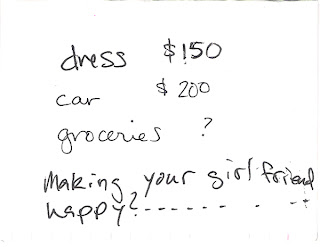 dress $150
car $200
groceries ?
Making your girlfriend
happy?------ - --